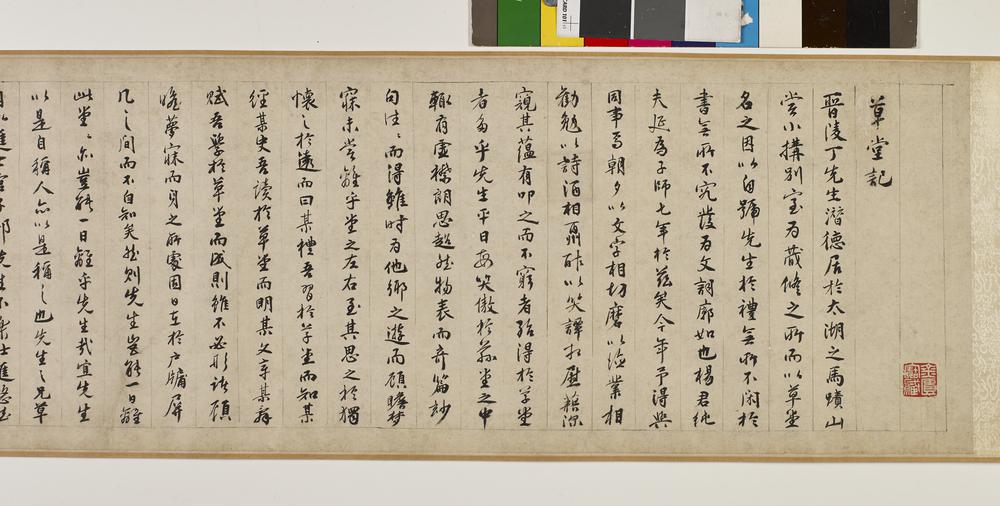 草堂記
晉陵丁先生潛德居於太湖之馬蹟山
嘗小搆別室為藏脩之所而以草堂
名之因以自號先生於禮無所不閑於
書無所不究發為文詞廓如也楊君純
夫延為子師七年於茲矣今年予得與
同事焉朝夕以文字相切磨以德業相
勸勉以詩酒相酬酢以笑譚相慰藉深
窺其蘊有叩之而不窮者殆得於草堂
者多乎先生平日每笑傲於茲堂之中
輒有虛襟朗思超然物表而奇篇妙
句往々而得雖時為他鄉之遊而顧瞻夢
寐未嘗離乎堂之左右至其思之於獨
懷之於遠而曰某禮吾習於草堂而知其
經某史吾讀於草堂而明其文章某辭
賦吾學於草堂而成則雖不必形諸顧
瞻夢寐而身之所處固日在於戶牖屏
几之間而不自知矣然則先生豈能一日離
此堂々亦豈能一日離乎先生哉宜先生
以是自稱人亦以是稱之也先生之兄草